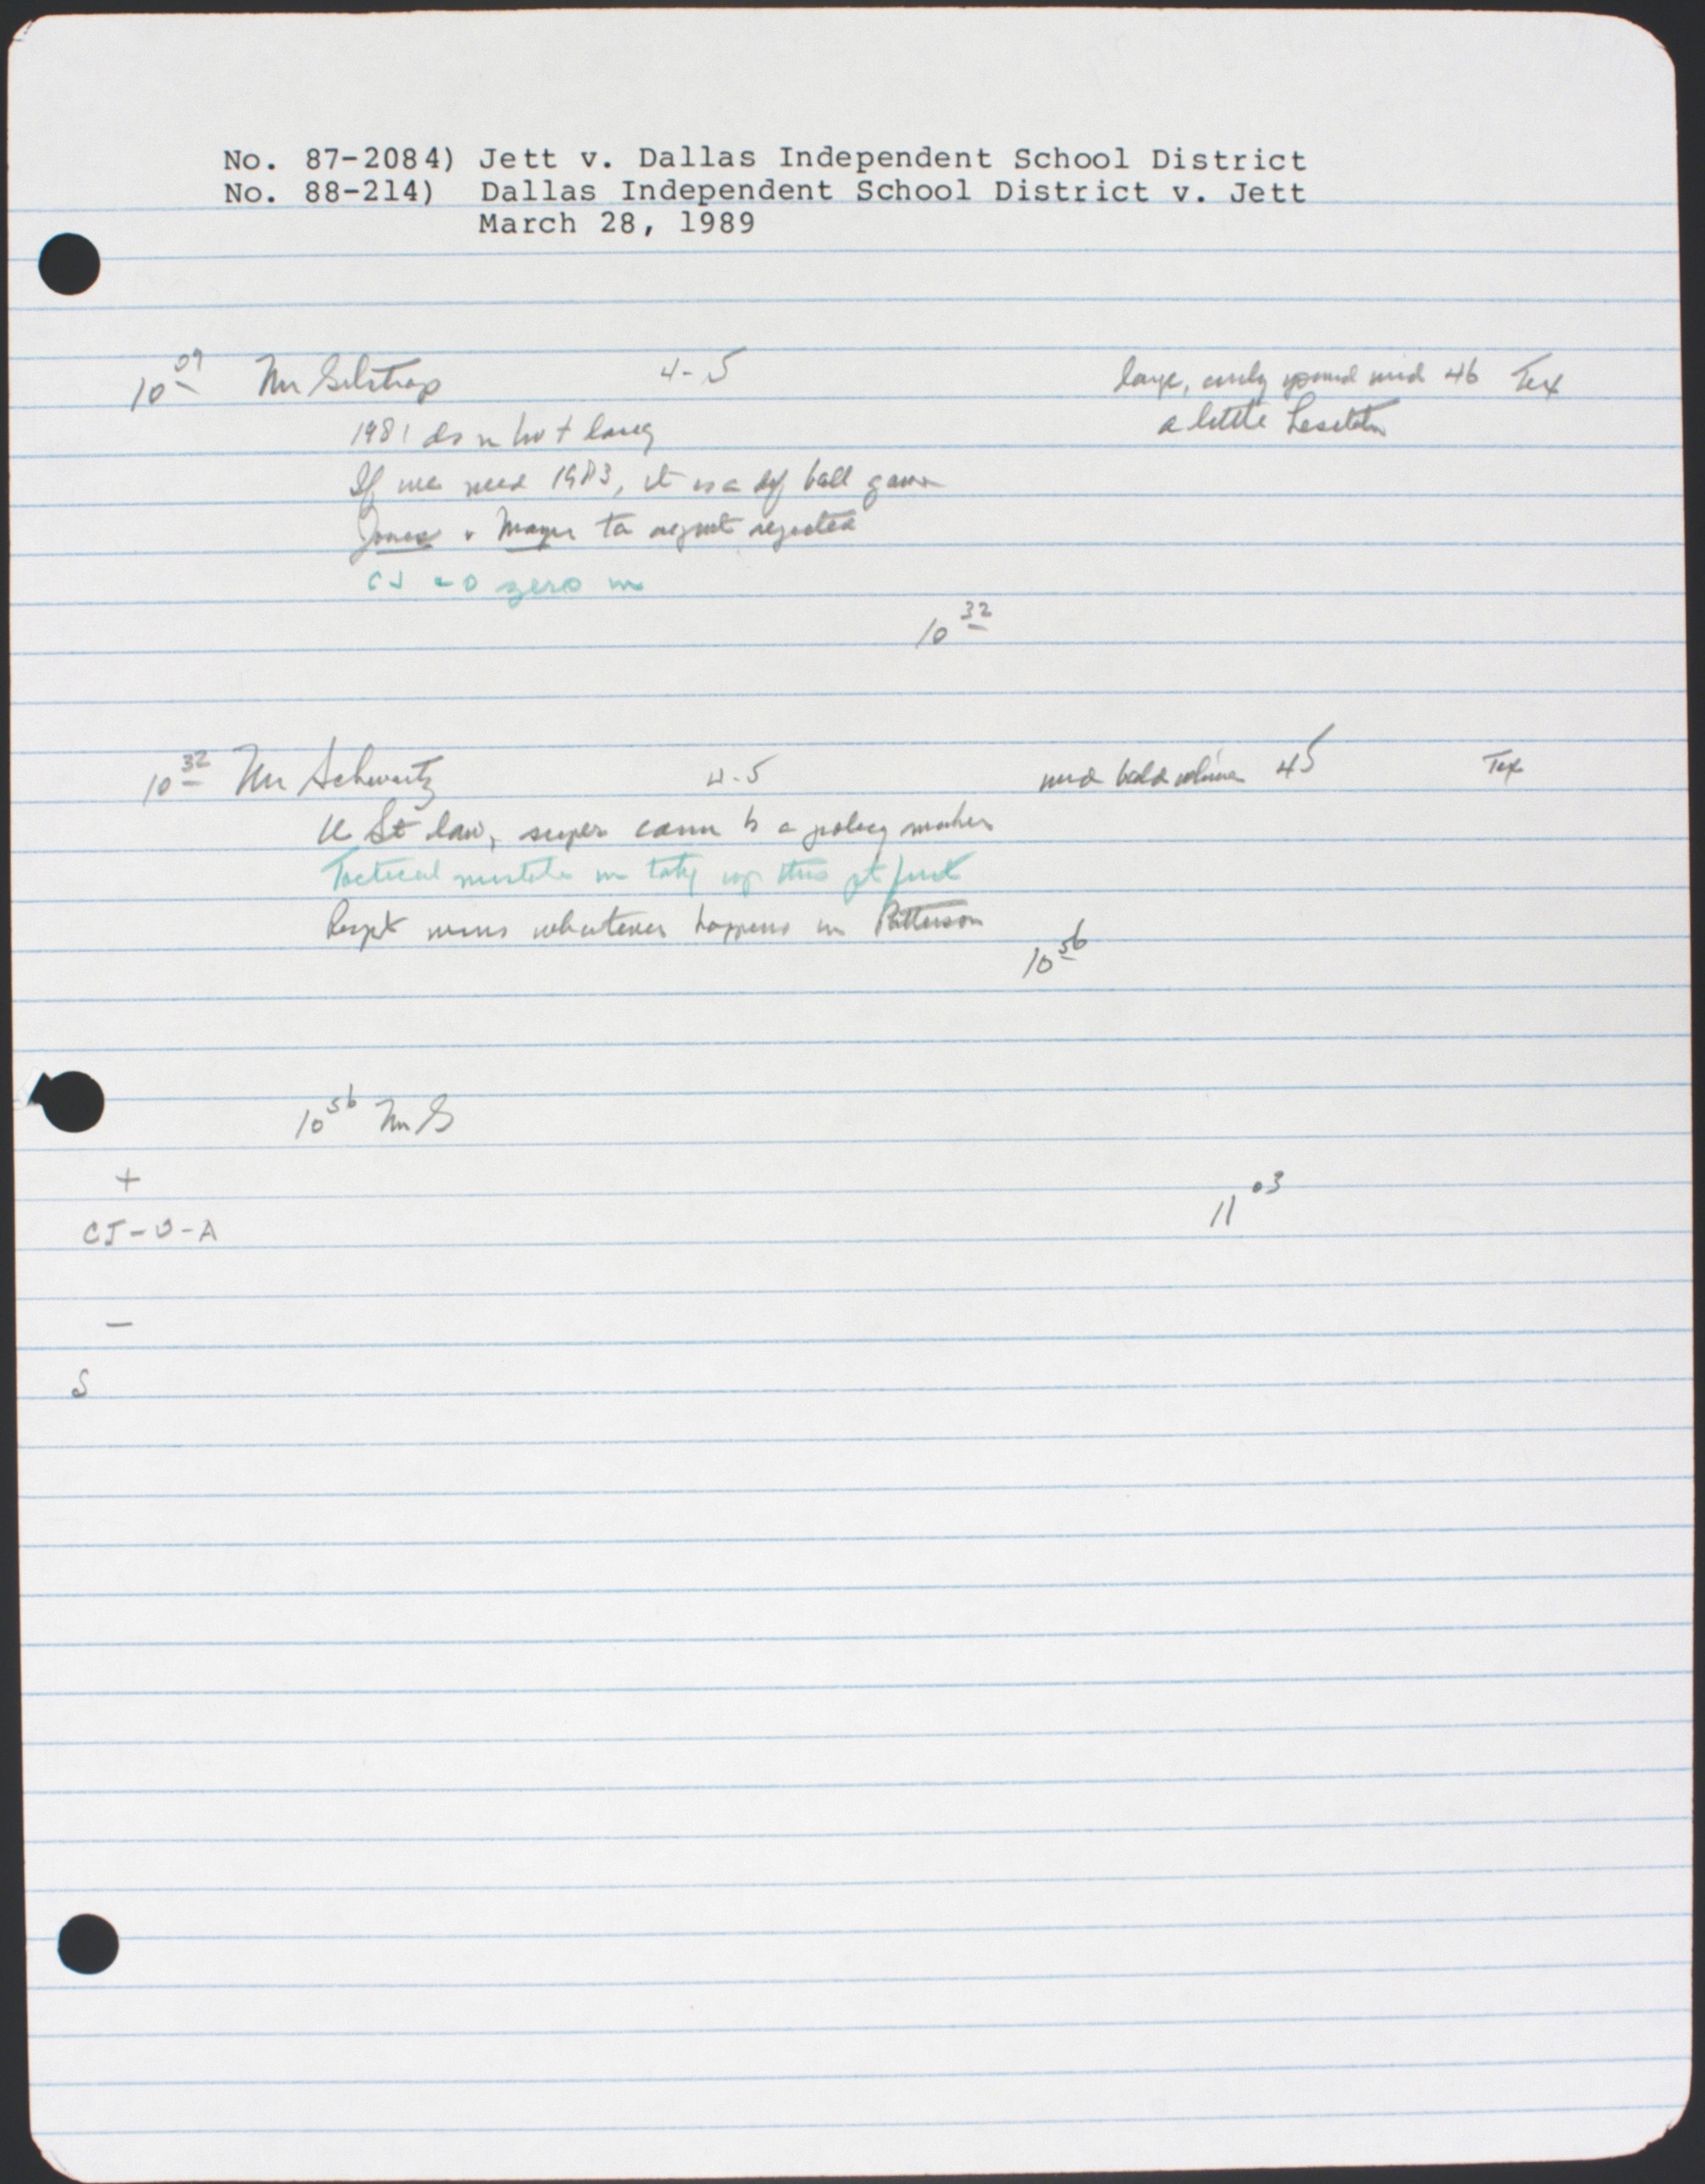 No. 87-2084) Jett v. Dallas Independent School District
No. 88-214) Dallas Independent School District v. Jett
March 28, 1989
10 09 Mr Gilstrap 4-5 large, curly mid 46 Tex
a little
1981 do n
If we need 1983, it is a dif ball game
Jones v Mayer
CJ + O zero in
10 32
10 32 Mr Schwartz 4-5 mid bald 45 Tex
U St law, super cann b a policy maker
Tactical mistake in takg up this pt first
Respt wins whatever happens in Patterson
10 56
10 56 Mr G
+
11 03
CJ-O-A
-
S